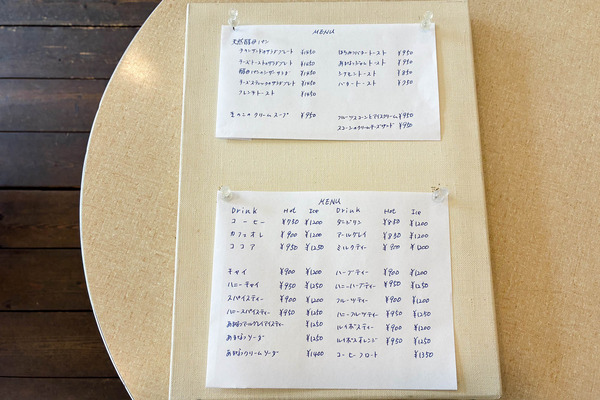 MENU
天然酵母パン
チキンサンドorサラダプレート ¥1450
チーズトーストorサラダプレート ¥1450
¥1450
チーズスティックorサラダプレート ¥1450
フレンチトースト ¥1450
はちみつバタートースト ¥950
トースト ¥950
シナモントースト ¥850
バタートースト ¥750
きのこのクリームスープ ¥950
フルーツスコーンとアイスクリーム ¥950
スコーンのクリームチーズサンド ¥950
MENU
Drink Hot Ice
コーヒー ¥750 ¥1200
カフェオレ ¥900 ¥1200
ココア ¥950 ¥1250
チャイ ¥900 ¥1200
ハニーチャイ ¥950 ¥1250
スパイスティー ¥900 ¥1200
ハニースパイスティー ¥950 ¥1250
アールグレイアイスティー ¥1250
ソーダ ¥1250
クリームソーダ ¥1400
Drink Hot Ice
ダージリン ¥850 ¥1200
アールグレイ ¥850 ¥1200
ミルクティー ¥900 ¥1200
ハーブティー ¥900 ¥1200
ハニーハーブティー ¥950 ¥1250
フルーツティー ¥900 ¥1200
ハニーフルーツティー ¥950 ¥1250
ルイボスティー ¥900 ¥1200
ルイボスオレンジ ¥950 ¥1250
コーヒーフロート ¥1350